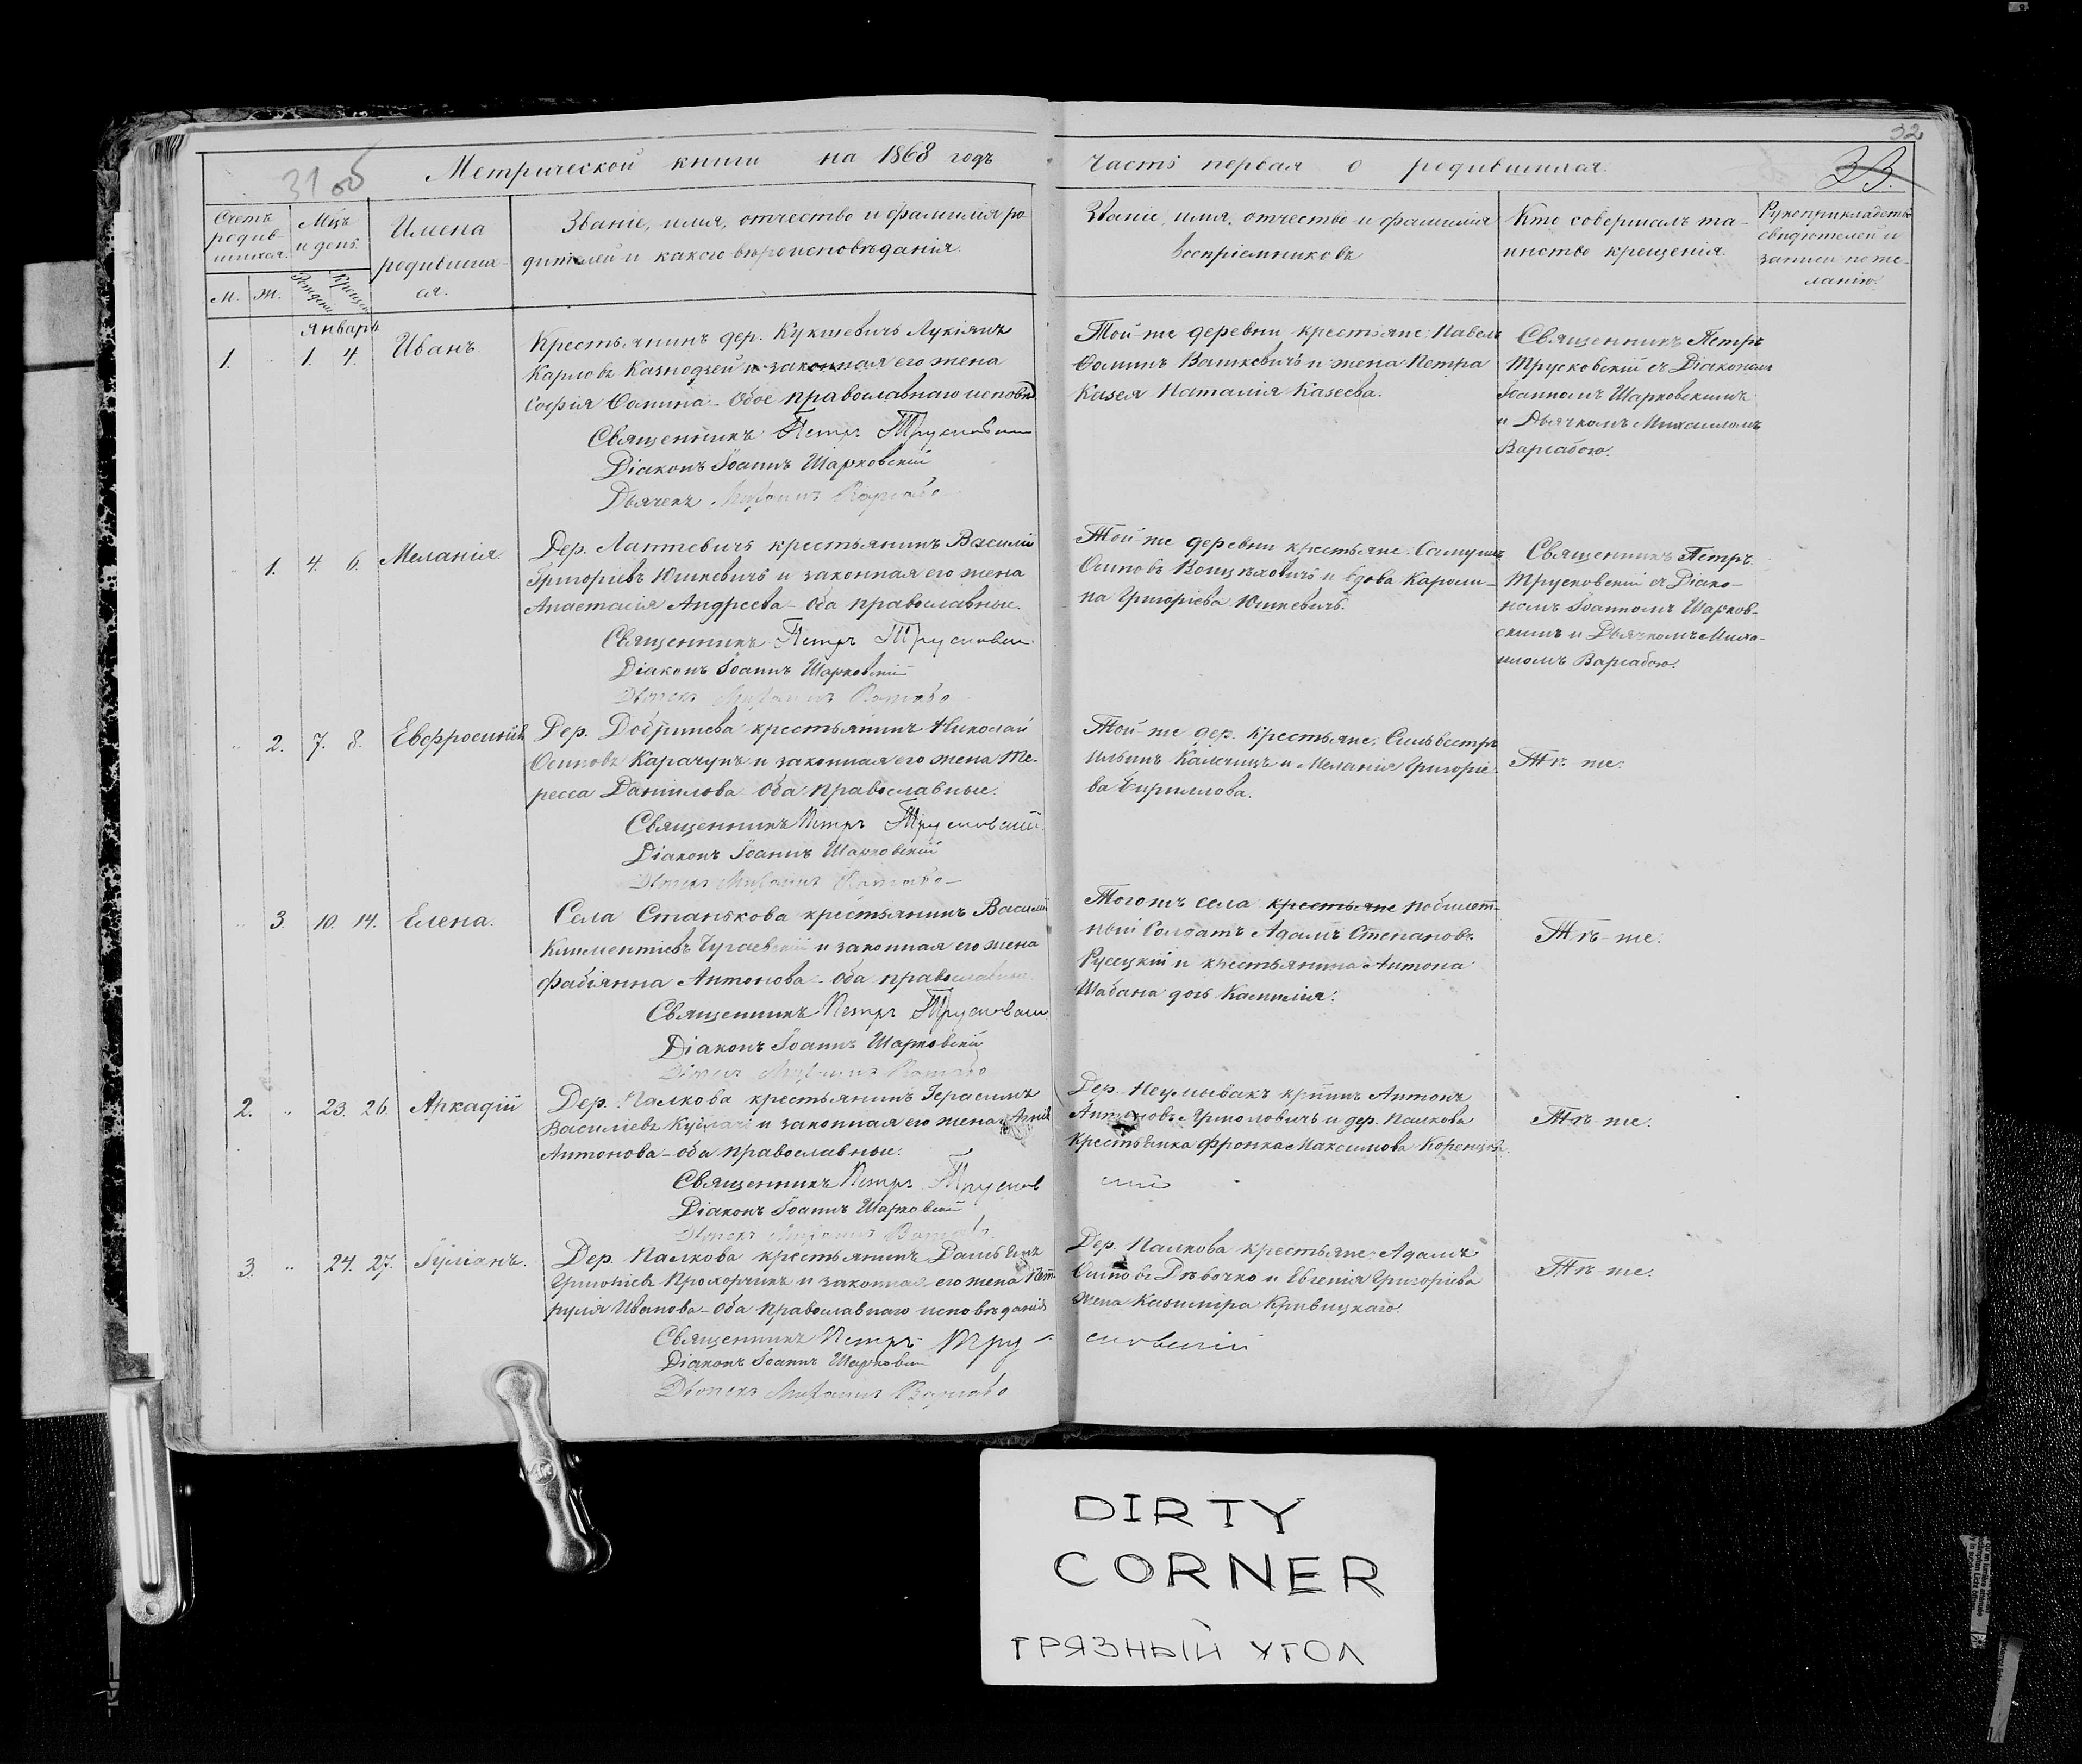 32
31 об
33.
Метрической книги на 1868 годъ
Часть первая о родившихся.
Счетъ родив-шихся.
М.
Ж.
Мцъ и день
Рожденія
Крещен.
Имена родившихся.
Званіе, имя, отчество и фамилія ро-
дителей и какого вѣроисповѣданія.
Званіе, имя, отчество и фамилія
воспріемниковъ
Кто совершалъ та-
инство крещенія.
Рукоприкладство
свидѣтелей о
записи по же-
ланію.
Январь
1. 1. 4. Иванъ.
Крестьянинъ дер. Кукшевичъ Лукіянъ
Карловъ Казнодзей и законная его жена
Софія Фомина - Обое православнаго исповѣд
Священникъ Петръ Трусковскій
Діаконъ Іоаннъ Шарковскій
Дьячекъ Михаилъ Варсаба
Той-же деревни крестьяне: Павелъ
Фоминъ Вашкевичъ и жена Петра
Казея Наталія Казеева.
Священникъ Петръ
Трусковскій съ Діакономъ
Іоанномъ Шарковскимъ
и Дьячкомъ Михаиломъ
Варсабою.
1. 4. 6. Меланія.
Дер. Лаптевичъ крестьянинъ Василій
Григоріевъ Юшкевичъ и законная его жена
Анастасія Андреева - Оба православные.
Священникъ Петръ Трусковскій
Діаконъ Іоаннъ Шарковскій
Дьячекъ Михаилъ Варсаба
Той-же деревни крестьяне: Самуилъ
Осиповъ и вдова Кароли-
на Григоріева Юшкевичъ.
Священникъ Петръ
Трусковскій съ Діако-
номъ Іоанномъ Шарков-
скимъ и Дьячкомъ Миха-
иломъ Варсабою.
2. 7. 8. Евфросинія
Дер. Добринева крестьянинъ Николай
Осиповъ Карачунъ и законная его жена Те-
ресса Данилова - Оба православные.
Священникъ Петръ Трусковскій.
Діаконъ Іоаннъ Шарковскій
Дьячекъ Михаилъ Варсаба
Той-же дер. крестьяне: Сильвестръ
Ильинъ и Меланія Григоріе-
ва Кириллова.
Тѣ-же.
3. 10. 14. Елена.
Села Станькова крестьянинъ Василій
Климентіевъ и законная его жена
Фабіянна Антонова - Оба православные
Священникъ Петръ Трусковскій.
Діаконъ Іоаннъ Шарковскій
Дьячекъ Михаилъ Варсаба
Тогожъ села крестьяне побилет-
ный Солдатъ Адамъ Степановъ
Русецкій и крестьянина Антона
Шабана дочь Камилія.
Тѣ-же.
2. 23. 26. Аркадій
Дер. Палкова крестьянинъ Герасимъ
Василіевъ и законная его жена Анна
Антонова - оба православные.
Священникъ Петръ Трусков
скій
Діаконъ Іоаннъ Шарковскій
Дьячекъ Михаилъ Варсаба
Дер. Неумывакъ кр-нинъ Антонъ
Антоновъ Ярмоловичъ и дер. Палкова
крестьянка Фронка Максимова
Тѣ-же.
3. 24. 27. Іуліанъ.
Дер. Палкова крестьянинъ Дамьянъ
Григоріевъ Прохорчикъ и законная его жена Пет-
рулія Иванова - Оба православнаго исповѣданія
Священникъ Петръ Тру-
сковскій
Діаконъ Іоаннъ Шарковскій
Дьячекъ Михаилъ Варсаба
Дер. Палкова крестьяне: Адамъ
Осиповъ Дѣвочко и Евгенія Григоріева
жена Казиміра Кривицкаго.
Тѣ-же.
DIRTY
CORNER
ГРЯЗНЫЙ УГОЛ